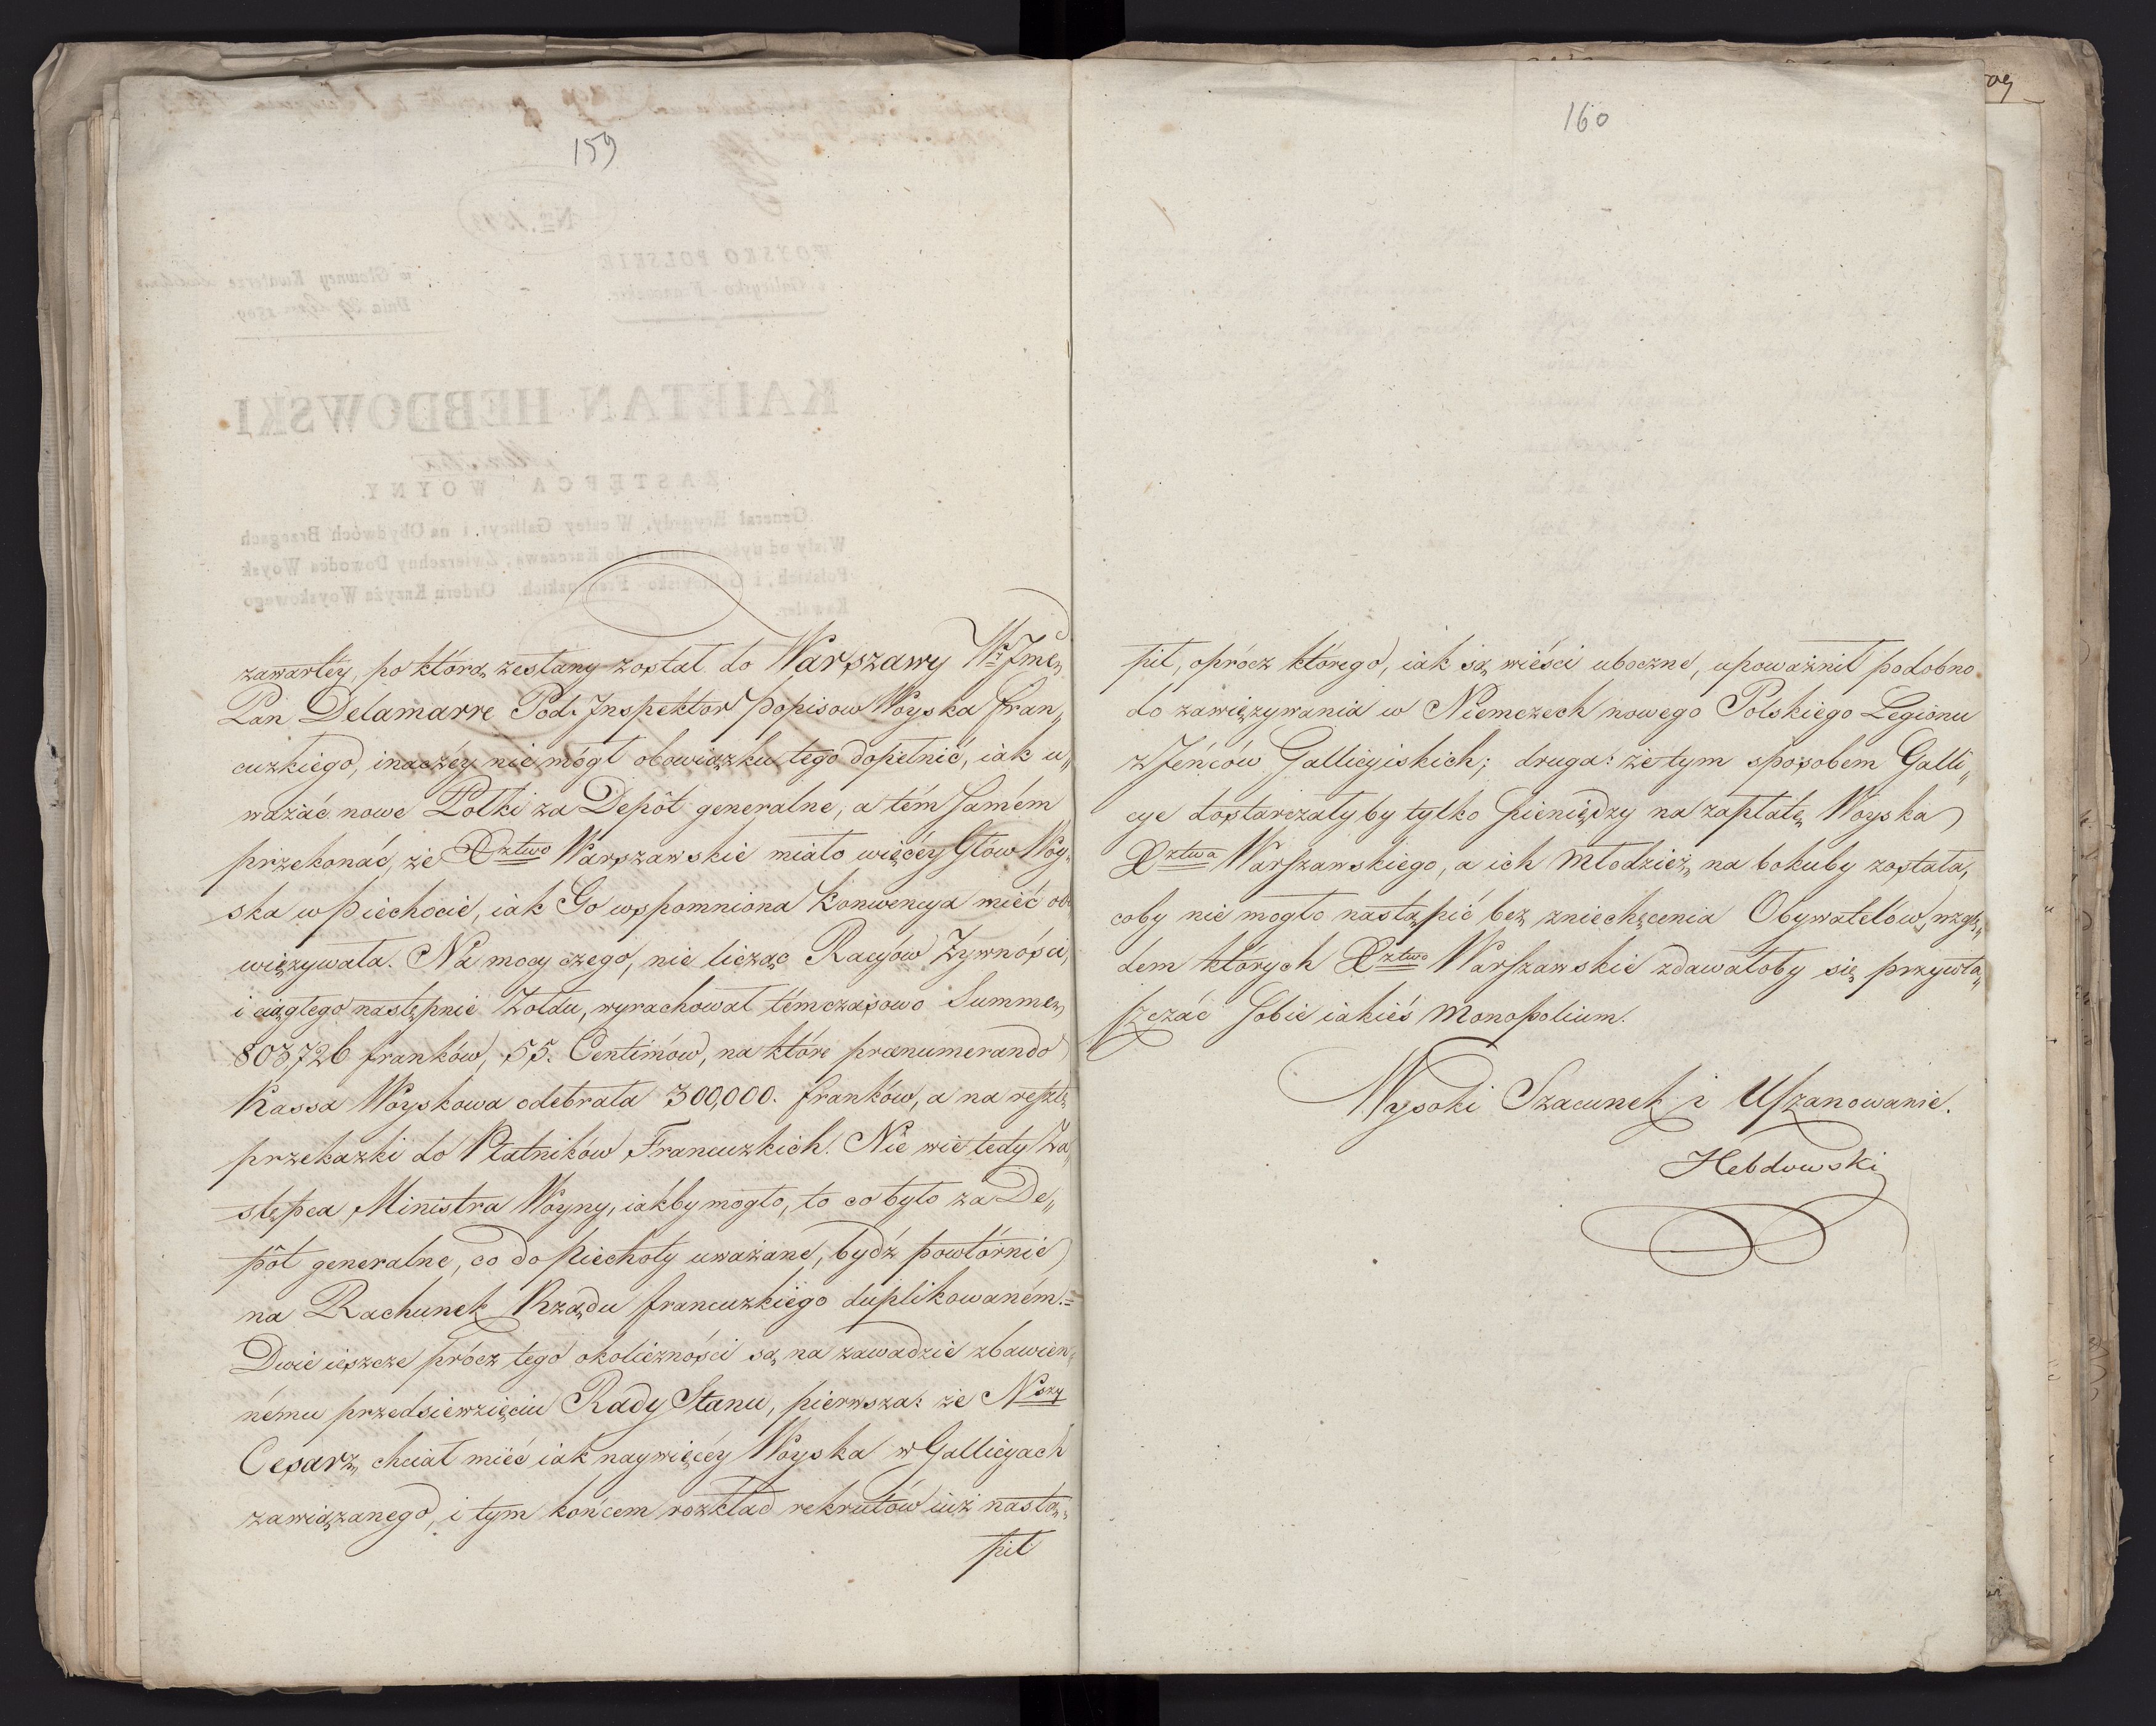 159
zawartéy, po którą zesłany został do Warszawy Wny Jmć
Pan Delamarre Pod-Inspektor Popisow Woyska fran„
cuzkiego, inaczéy nie mógł obowiązku tego dopełnić, iak u„
ważać nowe Półki za Depôt generalne, a tém samém
przekonać, że Xztwo Warszawskie miało więcéy Głów Woy„
ska w piechocie, iak Go wspomniona Konwencya mieć obo„
więzywała. Na mocy czego, nie licząc Racyów Żywności,
i ciągłego następnie Żołdu, wyrachował témczasowo Summę
803,726 franków, 55. Centimów, na które prænumerando
Kassa Woyskowa odebrała 300,000. franków, a na resztę
przekazki do Płatników Francuzkich. Nie wie tedy Za„
stępca Ministra Woyny, iakby mogło, to co było za De„
pôt generalne, co do piechoty uważane, bydź powtórnie
na Rachunek Rządu francuzkiego duplikowaném.=
Dwie ieszcze prócz tego okoliczności są na zawadzie zbawien„
nému przedsiewzięciu Rady Stanu, pierwsza: że Nszy
Cesarz, chciał mieć iak naywięcéy Woyska w Gallicyach
zawiązanego, i tym końcem rozkład rekrutów iuż nastą„
pił
160
pił, oprócz którego, iak są wieści uboczne, upoważnił podobno
do zawięzywania w Niemczech nowego Polskiego Legionu
z Jéńców Gallicyiskich; druga: że tym sposobem Galli„
cye dostarczałyby tylko pieniędzy na zapłatę Woyska
Xztwa Warszawskiego, a ich Młodzież, na bokuby została,
coby nie mogło nastąpić bez zniechęcenia Obywatelów, wzglę„
dem których Xztwo Warszawskie zdawałoby się przywła„
szczać sobie iakieś Monopolium.
Wysoki Szacunek i Uszanowanie.
Hebdowski